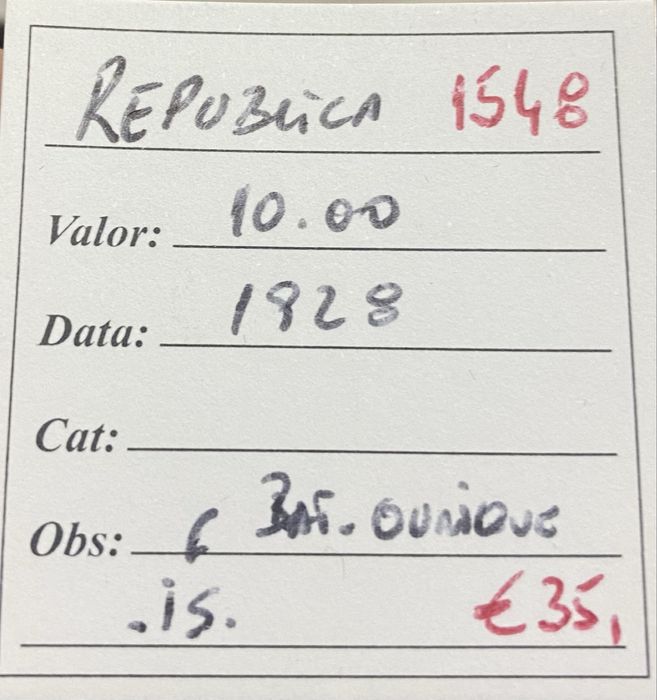 REPUBLICA 1548
Valor: 10.00
Data: 1928
Cat:
Obs: BAT. OURIQUE
.is. €35,